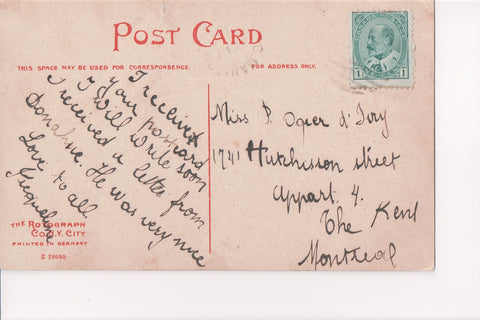 POST CARD
THIS SPACE MAY BE USED FOR CORRESPONDENCE.
FOR ADDRESS ONLY.
I received
your postcard
I will write soon
I received a letter from
He was very nice
Love to all
Miss P. Oger d'Ivry
1741 Hutchisson street
Appart. 4.
The Kent
Montreal
CANADA POSTAGE
1 1
THE ROTOGRAPH
CO., N.Y. CITY
PRINTED IN GERMANY